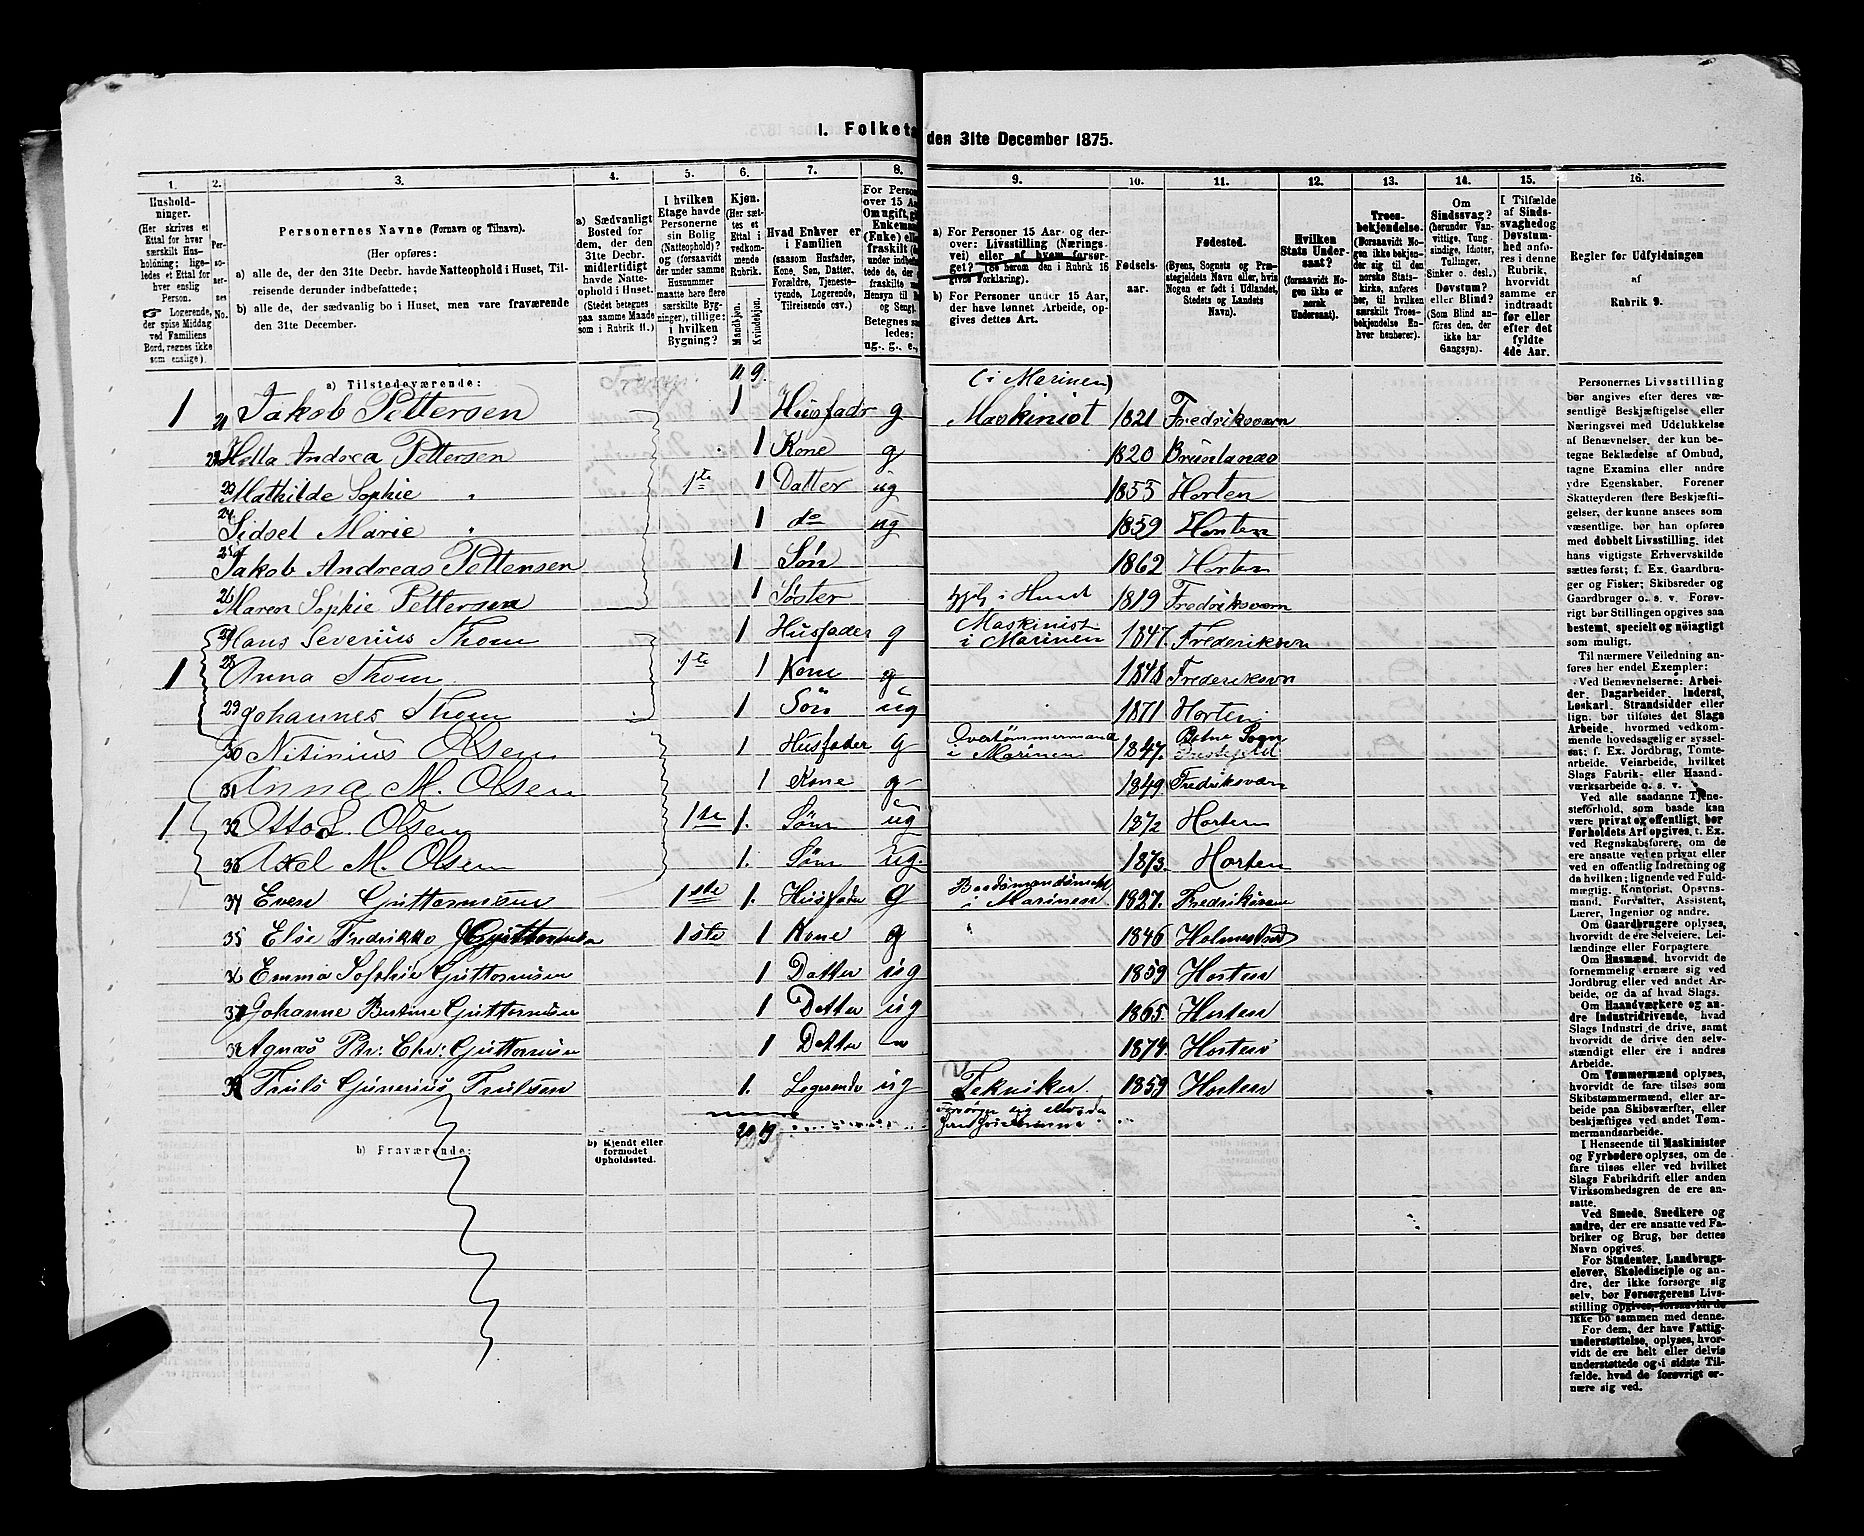 I. Folketæ den 31te December 1875.
1. 2. 3. 4. 5. 6. 7. 8. 9. 10. 11. 12. 13. 14. 15. 16.
Hushold-
ninger.
(Her skrives et
Ettal for hver
særskilt Hus-
holdning; lige-
ledes et Ettal for
hver enslig
Person.
☞ Logerende,
der spise Middag
ved Familiens
Bord, regnes ikke
som enslige).
Per-
so-
ner-
nes
No.
Personernes Navne (Fornavn og Tilnavn).
(Her opføres:
a) alle de, der den 31te Decbr. havde Natteophold i Huset, Til-
reisende derunder indbefattede;
b) alle de, der sædvanlig bo i Huset, men vare fraværende
den 31te December.
a) Sædvanligt
Bosted for
dem, der den
31te Decbr.
midlertidigt
havde Natte-
ophold i Huset.
(Stedet betegnes
paa samme Maade
som i Rubrik 11.)
I hvilken
Etage havde
Personerne
sin Bolig
(Natteophold)?
og (forsaavidt
der under samme
Husnummer
maatte høre flere
særskilte Byg-
ninger), tillige:
i hvilken
Bygning?
Kjøn.
(Her sæt-
tes et
Ettal i
vedkom-
mende
Rubrik.
Mandkjøn.
Kvindekjøn.
Hvad Enhver er
i Familien
(saasom Husfader,
Kone, Søn, Datter,
Forældre, Tjeneste-
tyende, Logerende,
Tilreisende osv.)
For Person
over 15 Aar
Om ugift, gi
Enkeman
(Enke) elle
fraskilt (h
indbefat-
tede de, der e
fraskilte m
Hensyn til B
og Seng).
Betegnes saa
ledes:
ug., g., e.,
a) For Personer 15 Aar- og der-
over: Livsstilling (Nærings-
vei) eller af hvem forsør-
get? (Se herom den i Rubrik 16
givne Forklaring).
b) For Personer under 15 Aar,
der have lønnet Arbeide, op-
gives dettes Art.
Fødsels-
aar.
Fødested.
(Byens, Sognets og Præ-
stegjeldets Navn eller, hvis
Nogen er født i Udlandet,
Stedets og Landets
Navn).
Hvilken
Stats Under-
saat?
(forsaavidt No-
gen ikke er
norsk
Undersaat).
Troes-
bekjendelse.
(Forsaavidt No-
gen ikke bekjen-
der sig til den
norske Stats-
kirke, anføres
her, til hvilken
særskilt Troes-
bekjendelse En-
hver henhører).
Om
Sindssvag?
(herunder Van-
vittige, Tung-
sindige, Idioter,
Tullinger,
Sinker o. desl.)
Døvstum?
eller Blind?
(Som Blind an-
føres den, der
ikke har
Gangsyn).
I Tilfælde
af Sinds-
svaghed og
Døvstum-
hed anfø-
res i denne
Rubrik,
hvorvidt
samme er
indtraadt
før eller
efter det
fyldte
4de Aar.
Regler for Udfyldningen
af
Rubrik 9.
a) Tilstedeværende: 11 9 (i Marinen)
1 21 Jakob Pettersen 1 Husfader g Maskinist 1821 Fredriksværn
22 Andrea Pettersen 1 Kone g 1820 Brunlanæs
23 Mathilde Sophie " 1te 1 Datter ug 1855 Horten
24 Sidsel Marie " 1 do ug 1859 Horten
25 Jakob Andreas Pettersen 1 Søn 1862 Horten
26 Maren Sophie Pettersen 1 Søster 1819 Fredriksværn
27 Hans Severius Thom 1 Husfader g Maskinist i Marinen 1847. Frederiksvn
1 28 Anna Thom 1te 1 Kone g 1848 Frederiksvn
29 Johannes Thom 1 Søn ug 1871 Horten
30 Olsen 1 Husfader g Overtømmermand i Marinen 1847. Botne Sogn
31 Anna M. Olsen 1 Kone g 1849. Fredriksværn
1 32 Otto L. Olsen 1ste 1. Søn ug 1872 Horten
33 Axel M. Olsen 1. Søn ug. 1873. Horten
34 Even Guttormsen 1ste 1. Husfader g i Marinen 1827. Fredriksværn
35 Else Fredrikke Guttormsen 1ste 1 Kone g " 1846 Holmestrand
36 Emma Sofphie Guttormsen 1 Datter ug 1859 Horten
37 Johanne Bertine Guttormsen 1 Datter ug 1865. Horten
38 Agnæs Ptr: Chr: Guttormsen 1 Datter 1874. Horten
39 Truls Gunerius Trulsen 1. Logerende ug Tekniker 1859 Horten
20 19
b) Fraværende:
b) Kjendt eller
formodet
Opholdssted.
Personernes Livsstilling
bør angives efter deres væ-
sentlige Beskjæftigelse eller
Næringsvei med Udelukkelse
af Benævnelser, der kun be-
tegne Beklædelse af Ombud,
tagne Examina eller andre
ydre Egenskaber. Forener
Skatteyderen flere Beskjæfti-
gelser, der kunne ansees som
væsentlige, bør han opføres
med dobbelt Livsstilling, idet
hans vigtigste Erhvervskilde
sættes først; f. Ex. Gaardbru-
ger og Fisker; Skibsreder og
Gaardbruger o. s. v. Forøv-
rigt bør Stillingen opgives saa
bestemt, specielt og nöiagtigt
som muligt.
Til nærmere Veiledning an-
føres her endel Exempler:
Ved Benævnelserne: Arbei-
der, Dagarbeider, Inderst,
Løskarl, Strandsidder eller
lign. bør tilføies det Slags
Arbeide, hvormed vedkom-
mende hovedsagelig er syssel-
sat; f. Ex. Jordbrug, Tomte-
arbeide, Veiarbeide, hvilket
Slags Fabrik- eller Haand-
værksarbeide o. s. v.
Ved alle saadanne Tjene-
steforhold, som baade kan
være privat og offentligt, bør
Forholdets Art opgives, t. Ex.
ved Regnskabsførere, om de
ere ansatte ved en privat eller
ved en offentlig Indretning og
da hvilken; lignende ved Fuld-
mægtig, Kontorist, Opsyns-
mand, Forvalter, Assistent,
Lærer, Ingeniør og andre.
Om Gaardbrugere oplyses,
hvorvidt de ere Selveiere, Lei-
lændinge eller Forpagtere.
Om Husmænd, hvorvidt de
fornemmelig ernære sig ved
Jordbrug eller ved andet Ar-
beide, og da af hvad Slags.
Om Haandværkere og an-
dre Industridrivende, hvad
Slags Industri de drive, samt
hvorvidt de drive den selv-
stændigt eller ere i andres
Arbeide.
Om Tømmermænd oplyses,
hvorvidt de fare tilsøs som
Skibstømmermænd, eller ar-
beide paa Skibsværfter, eller
beskjæftiges ved andet Tøm-
mermandsarbeide.
I Henseende til Maskinister
og Fyrbødere oplyses, om de
fare tilsøs eller ved hvilket
Slags Fabrikdrift eller anden
Virksomhedsgren de ere an-
satte.
Ved Smede, Snedkere og
andre, der ere ansatte ved Fa-
briker og Brug, bør dettes
Navn opgives.
For Studenter, Landbrugs-
elever, Skoledisciple og an-
dre, der ikke forsørge sig
selv, bør Forsørgerens Livs-
stilling opgives, forsaavidt de
ikke bo sammen med denne.
For dem, der have Fattig-
understøttelse, oplyses, hvor-
vidt de ere helt eller delvis
understøttede og i sidste Til-
fælde, hvad de forøvrigt er-
nære sig ved.